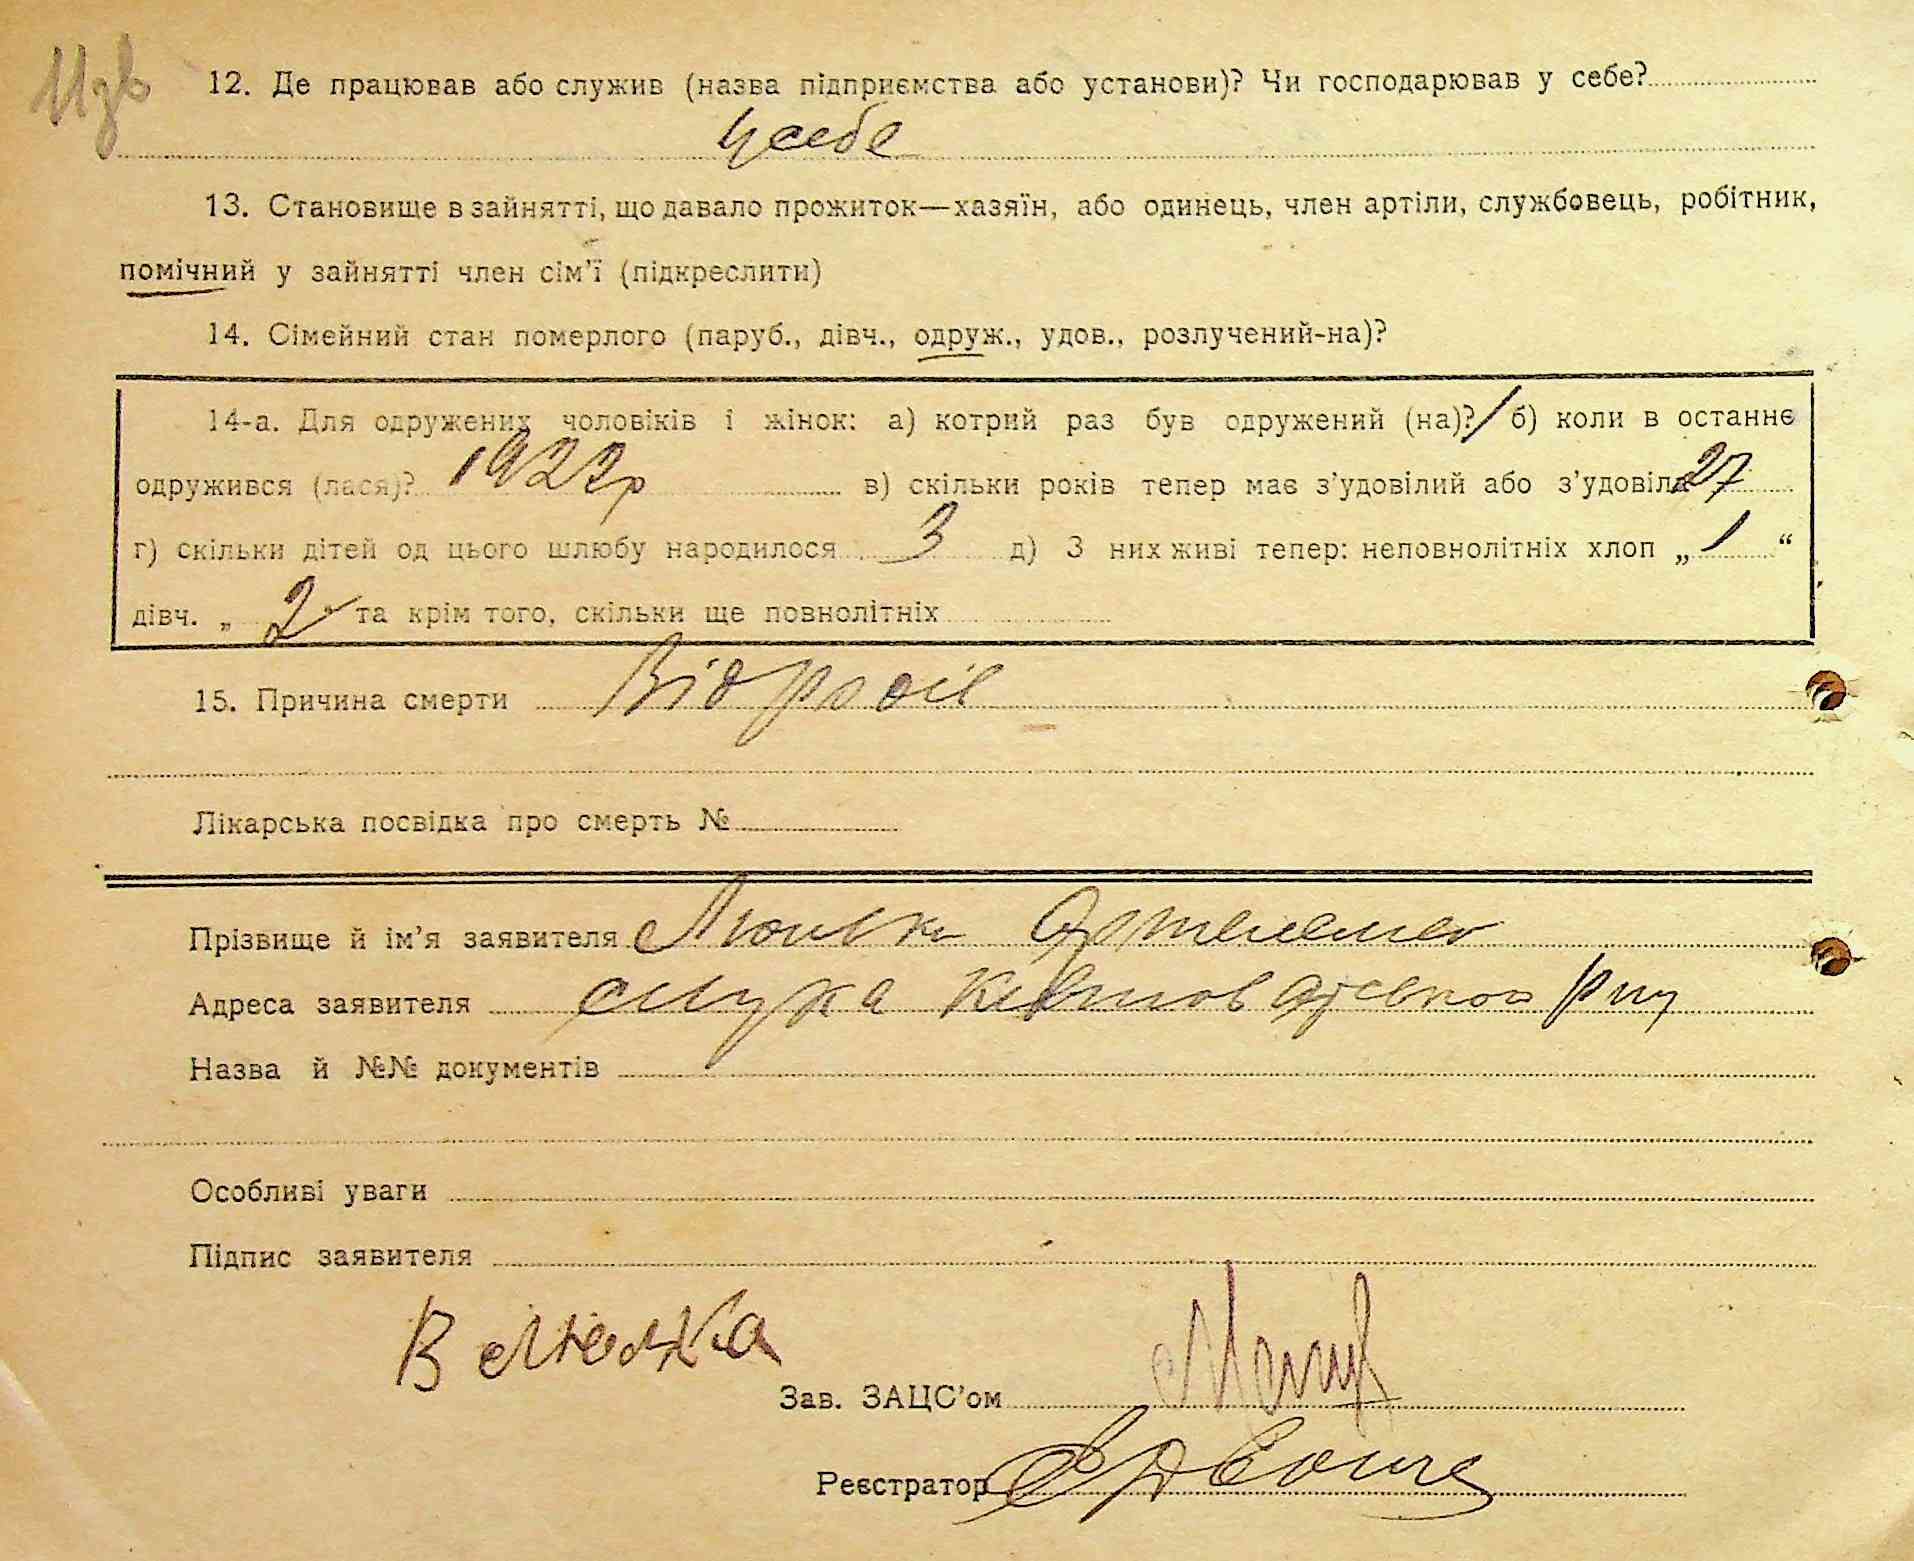 12. Де працював або служив (назва підприємства або установи)? Чи господарював у себе?
у себе
13. Становище в зайнятті, що давало прожиток—хазяїн, або одинець, член артіли, службовець, робітник,
помічний у зайнятті член сім'ї (підкреслити)
14. Сімейний стан померлого (паруб., дівч., одруж., удов., розлучений-на)?
14-а. Для одружених чоловіків і жінок: а) котрий раз був одружений (на)? / б) коли в останнє
одружився (лася)? 1922р в) скільки років тепер має з'удовілий або з'удовіла 27
г) скільки дітей од цього шлюбу народилося 3 д) З них живі тепер: неповнолітніх хлоп „ 1 “
дівч. „ 2 “ та крім того, скільки ще повнолітніх
15. Причина смерти Від родів
Лікарська посвідка про смерть №
Прізвище й ім'я заявителя
Адреса заявителя
Назва й №№ документів
Особливі уваги
Підпис заявителя
Зав. ЗАЦС'ом
Реєстратор